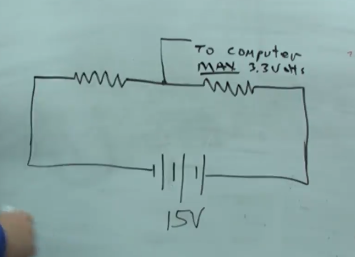 To computer
MAX 3.3Volts
15V